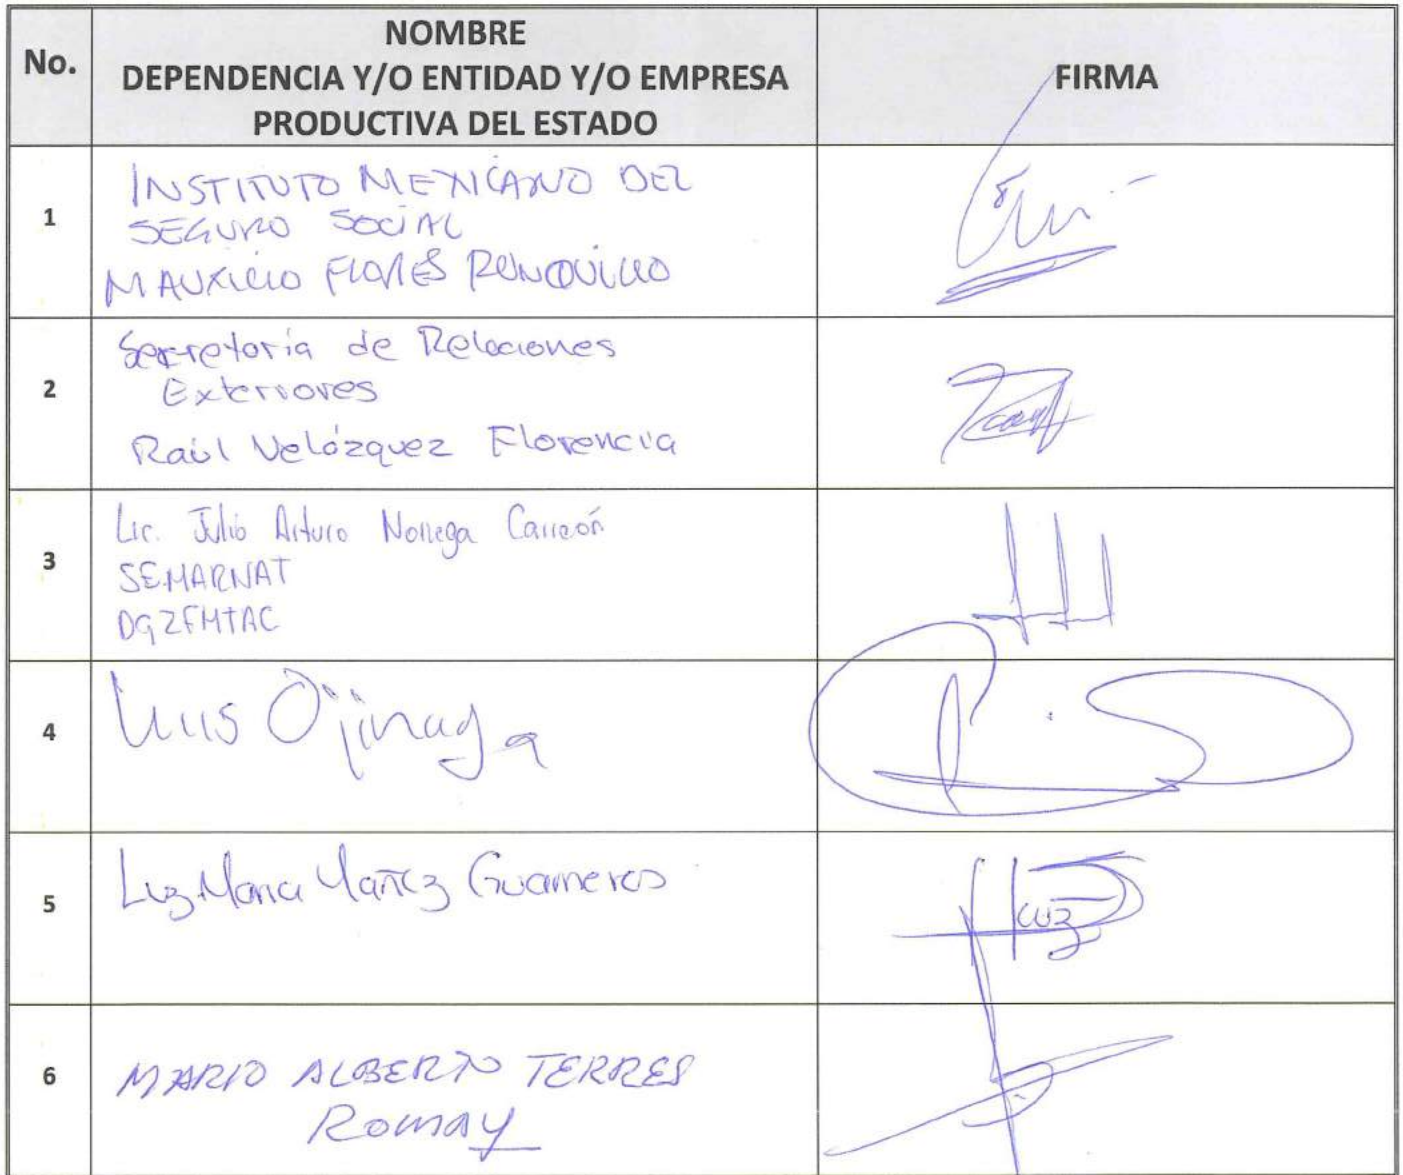 No.
NOMBRE
DEPENDENCIA Y/O ENTIDAD Y/O EMPRESA
PRODUCTIVA DEL ESTADO
FIRMA
1
INSTITUTO MEXICANO DEL
SEGURO SOCIAL
MAURICIO FLORES RONQUILLO
2
Secretaría de Relaciones
Exteriores
Raúl Velázquez Florencia
3
Lic. Julio Arturo Noriega Carreón
SEMARNAT
DGZFMTAC
4
Luis Ojinaga
5
Luz Maria Yañez Guarneros
Luz
6
MARIO ALBERTO TERRES
Romay